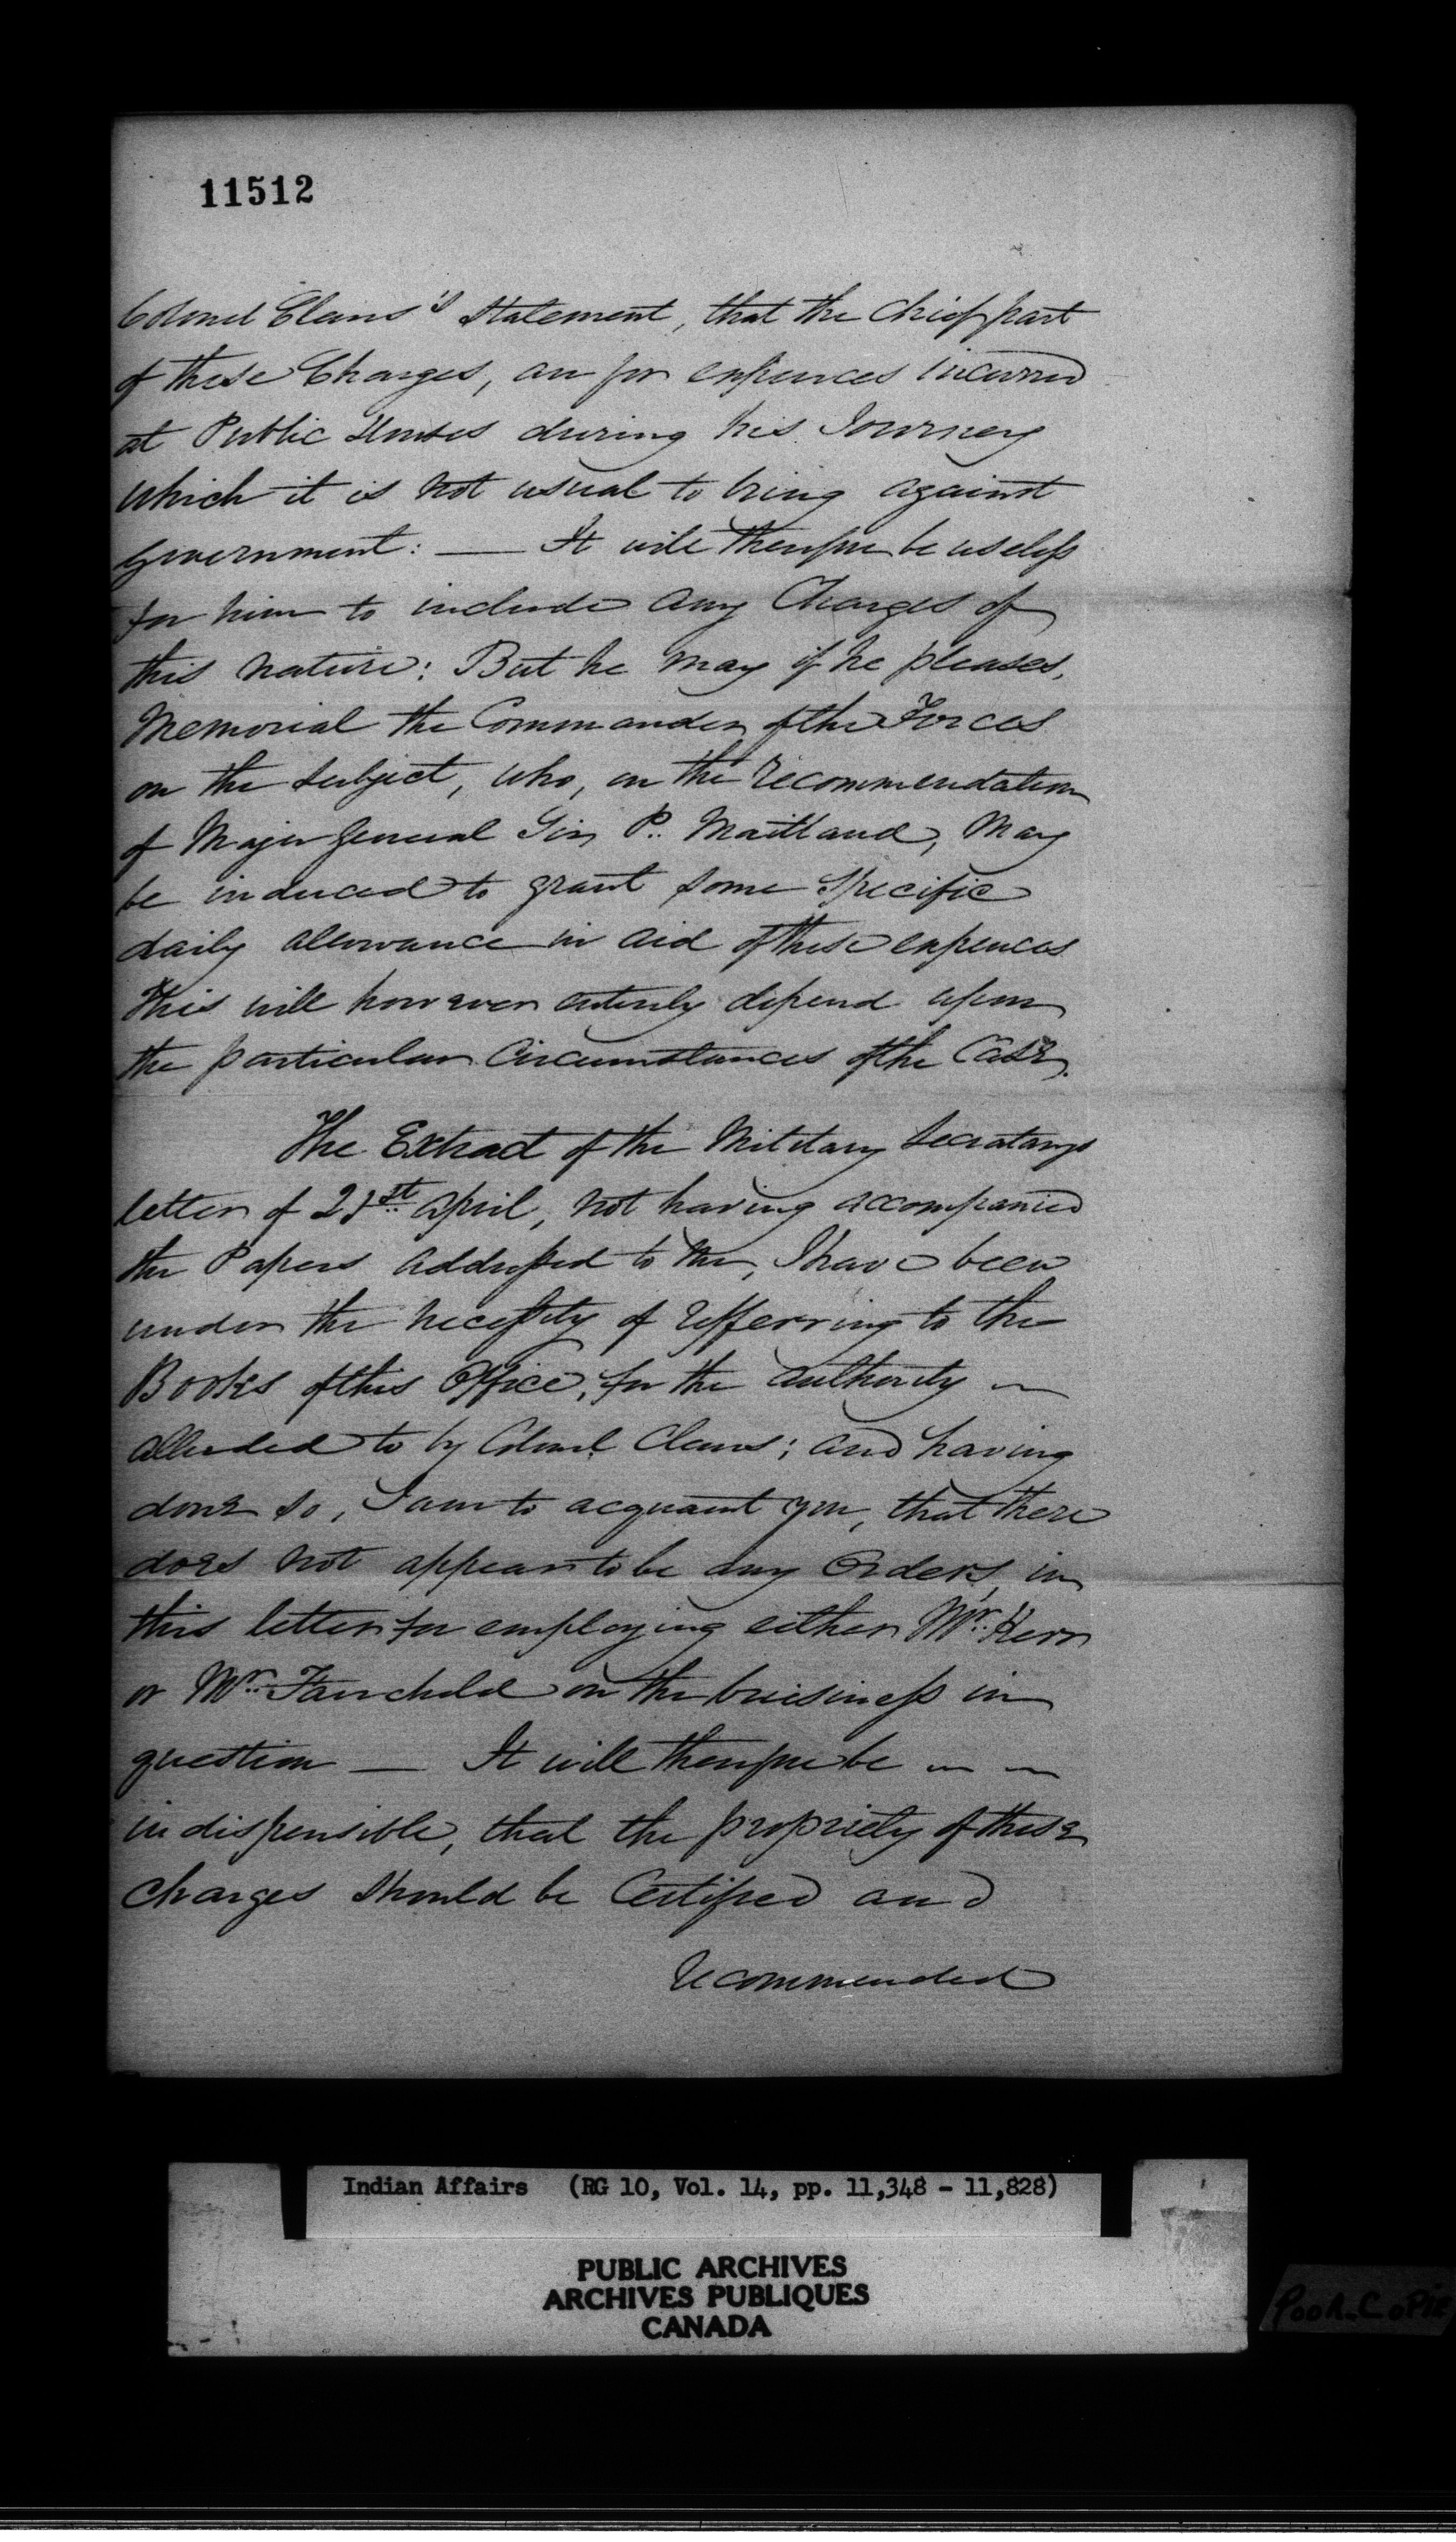 11512
Colonel Claus's Statement, that the Chief part
of these Charges, are for expences incurred
at Public Houses during his Journey
which it is not usual to bring against
Government: — It will therefore be useless
for him to include any Charges of
this nature: But he may if he pleases,
Memorial the Commander of the Forces
on the Subject, who, on the recommendation
of Major General Sir P. Maitland, May
be induced to grant some Specific
daily allowance in aid of these expences
This will however entirely depend upon
the particular Circumstances of the Case.
The Extract of the Military Secretarys
letter of 21st April, not having accompanied
the Papers addressed to me, I have been
under the necessity of refferring to the
Books of this Office, for the authority
alluded to by Colonel Claus; and having
done so, I am to acquaint you, that there
does not appear to be any Orders, in
this letter for employing either Mr. Kerr
or Mr. Fairchild on the buisiness in
question — It will therefore be
indispensible, that the propriety of these
Charges should be Certified and
recommended
Indian Affairs (RG 10, Vol. 14, pp. 11,348 - 11,828)
PUBLIC ARCHIVES
ARCHIVES PUBLIQUES
CANADA
POOR COPIE